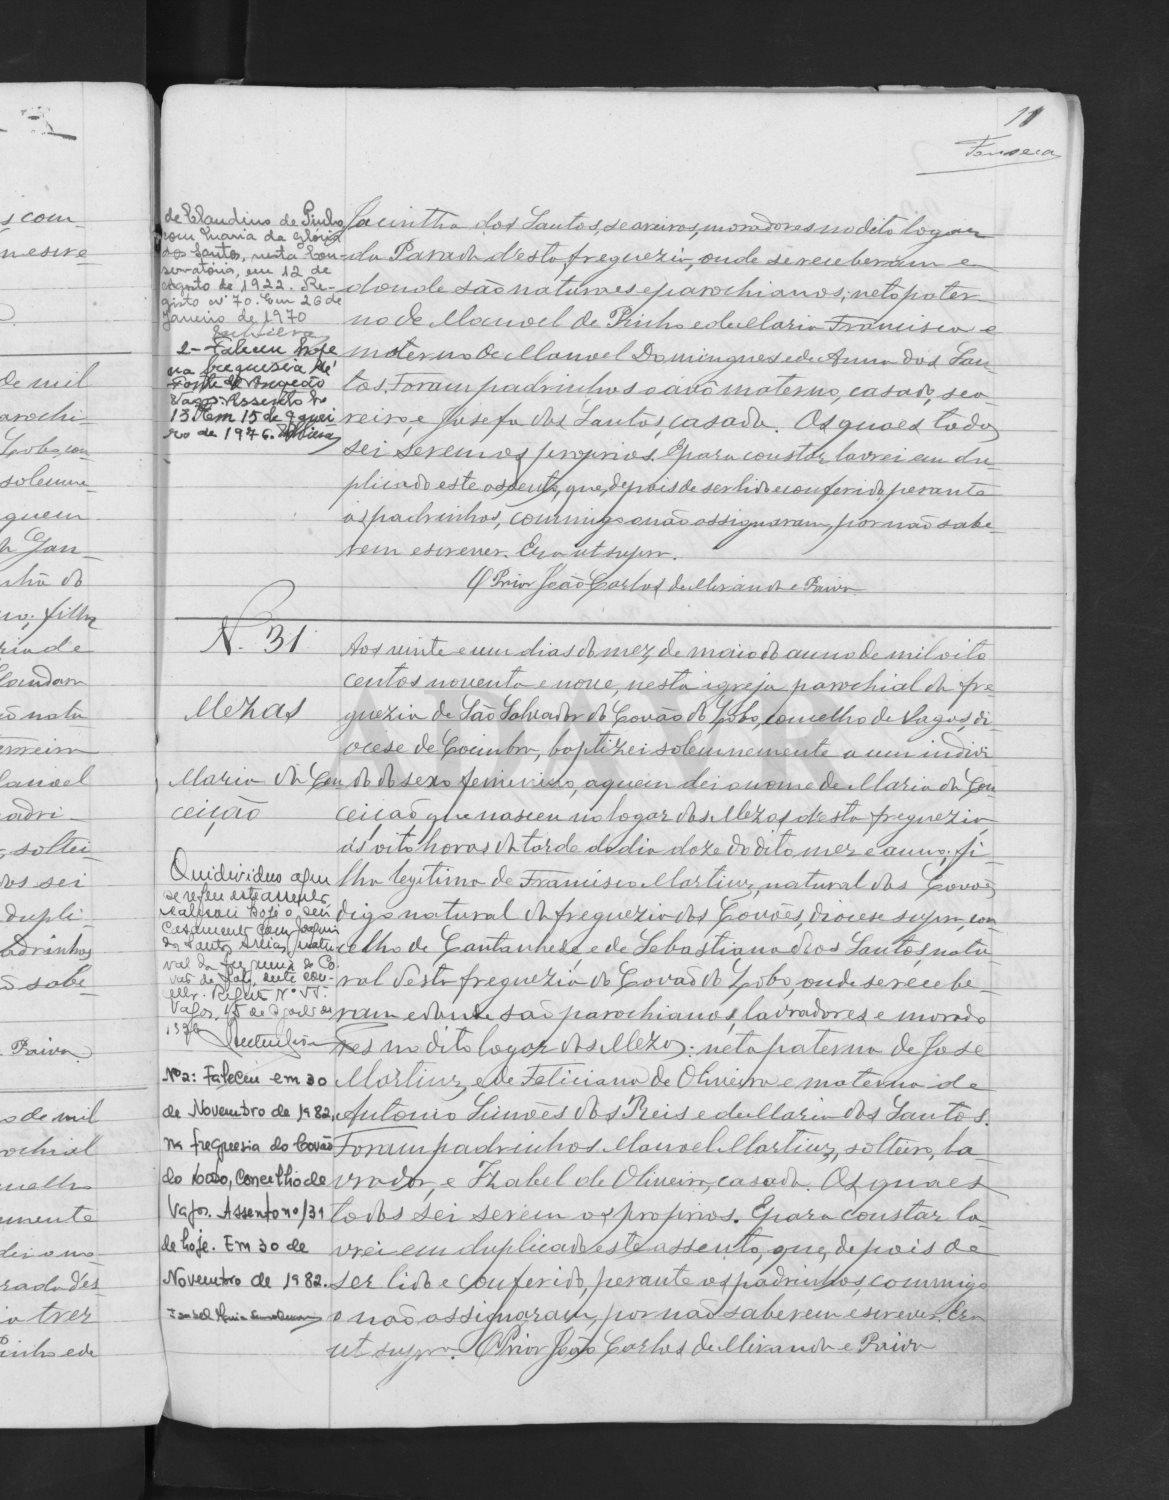 11
Fonseca
de Claudino de Pinho
com Maria da Glória
dos Santos, nesta Con-
servatória, em 12 de
Agosto de 1922. Re-
gisto nº 70. Em 26 de
Janeiro de 1970
2- Faleceu hoje
na freguesia de
Fonte de Angeão
Vagos. Assento nº
13. Em 15 de Janei-
ro de 1976.
Jacintha dos Santos, seareiros, moradores no dito logar
da Parada d'esta freguezia, onde se receberam e
donde são naturaes e parochianos; neto pater-
no de Manoel de Pinho e de Maria Francisca e
materno de Manoel Domingues e de Anna dos San-
tos. Foram padrinhos o avô materno, casado, sea-
reiro, e Josefa dos Santos, casada. Os quaes todos
sei serem os proprios. E para constar lavrei em du-
plicado este assento, que, depois de ser lido e conferido perante
os padrinhos, commigo o não assignaram, por não sabe-
rem escrever. Era ut supra.
O Prior João Carlos de Miranda e Paiva
N. 31
Mezas
Maria da Con-
ceição
Aos vinte e um dias do mez de maio do anno de mil oito
centos noventa e nove, nesta igreja parochial da fre-
guezia de São Salvador do Covão do Lobo, concelho de Vagos, di-
ocese de Coimbra, baptizei solemnemente a um indivi
duo do sexo feminino, a quem dei o nome de Maria da Con
ceição que nasceu no logar das Mezas d'esta freguezia,
ás oito horas da tarde do dia doze do dito mez e anno; fi-
lha legitima de Francisco Martins, natural das Covões
digo natural da freguezia das Covões, diocese supra, con
celho de Cantanhede, e de Sebastiana dos Santos, natu-
ral d'esta freguezia do Covão do Lobo, onde se recebe-
ram e donde são parochianos, lavradores e morado
res no dito logar das Mezas; neta paterna de José
Martins, e de Feliciana de Oliveira e materna de
Antonio Simões dos Reis e de Maria dos Santos.
Foram padrinhos Manoel Martins, solteiro, la-
vrador, e Izabel de Oliveira, casada. Os quaes
todos sei serem os proprios. E para constar la-
vrei em duplicado este assento, que, depois de
ser lido e conferido, perante os padrinhos, commigo
o não assignaram, por não saberem escrever. Era
ut supra. O Prior João Carlos de Miranda e Paiva
O individuo a que
se refere este assento
realizou hoje o seu
casamento com Joaquim
dos Santos natu-
ral da freguesia do Co
vão do Lobo, deste con-
celho. Registo Nº
Vagos, 15 de
Nº 2: Faleceu em 30
de Novembro de 1982,
na freguesia do Covão
do Lobo, Concelho de
Vagos. Assento nº 131
de hoje. Em 30 de
Novembro de 1982.